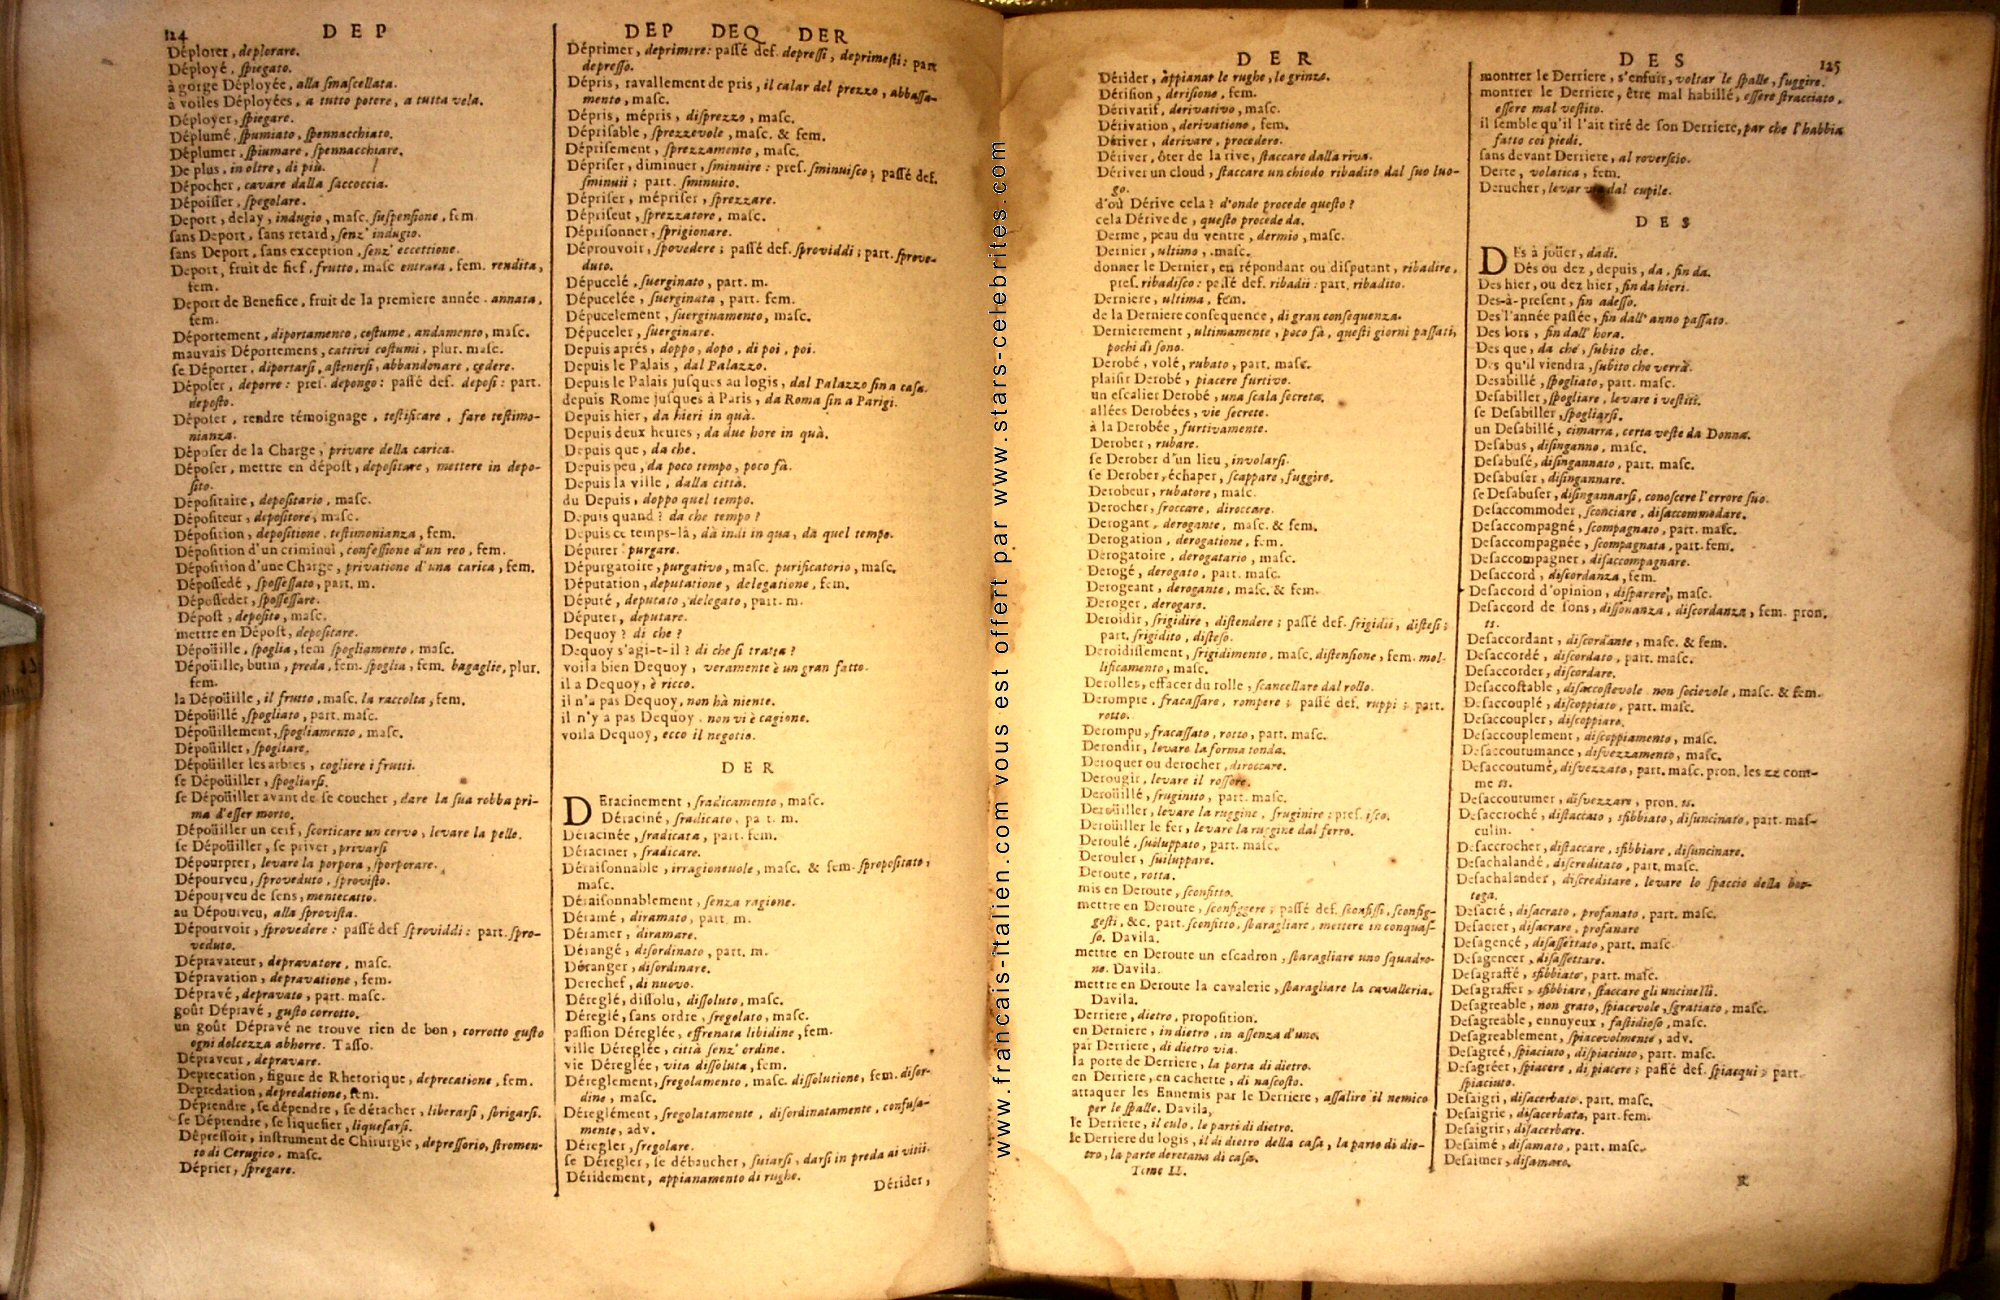 124
D E P
Déplorer, deplorare.
Déployé, spiegato.
à gorge Déployée, alla smascellata.
à voiles Déployées, a tutto potere, a tutta vela.
Déployer, spiegare.
Déplumé, spiumato, spennacchiato.
Déplumer, spiumare, spennacchiare.
De plus, in oltre, di più.
Dépocher, cavare dalla saccoccia.
Dépoisser, spegolare.
Deport, delay, indugio, masc. suspensione, fem.
sans Deport, sans retard, senz' indugio.
sans Deport, sans exception, senz' eccettione.
Deport, fruit de fief, frutto, masc entrata, fem. rendita,
fem.
Deport de Benefice, fruit de la premiere année. annata,
fem.
Déportement, diportamento, costume, andamento, masc.
mauvais Déportemens, cattivi costumi, plur. masc.
se Déporter, diportarsi, astenersi, abbandonare, cedere.
Déposer, deporre: pres. depongo: passé def. deposi: part.
deposto.
Déposer, rendre témoignage, testificare, fare testimo-
nianza.
Déposer de la Charge, privare della carica.
Déposer, mettre en dépost, depositare, mettere in depo-
sito.
Dépositaire, depositario, masc.
Dépositeur, depositore, masc.
Déposition, depositione, testimonianza, fem.
Déposition d'un criminel, confessione d'un reo, fem.
Déposition d'une Charge, privatione d'una carica, fem.
Dépossedé, spossessato, part. m.
Déposseder, spossessare.
Dépost, deposito, masc.
mettre en Dépost, depositare.
Dépoüille, spoglia, fem spogliamento, masc.
Dépoüille, butin, preda, fem. spoglia, fem. bagaglie, plur.
fem.
la Dépoüille, il frutto, masc. la raccolta, fem.
Dépoüillé, spogliato, part. masc.
Dépoüillement, spogliamento, masc.
Dépoüiller, spogliare.
Dépoüiller les arbres, cogliere i frutti.
se Dépoüiller, spogliarsi.
se Dépoüiller avant de se coucher, dare la sua robba pri-
ma d'esser morto.
Dépoüiller un cerf, scorticare un cervo, levare la pelle.
se Dépoüiller, se priver, privarsi
Dépourprer, levare la porpora, sporporare.
Dépourveu, sproveduto, sprovisto.
Dépourveu de sens, mentecatto.
au Dépourveu, alla sprovista.
Dépourvoir, sprovedere: passé def sproviddi: part. spro-
veduto.
Dépravateur, depravatore, masc.
Dépravation, depravatione, fem.
Dépravé, depravato, part. masc.
goût Dépravé, gusto corrotto.
un goût Dépravé ne trouve rien de bon, corrotto gusto
ogni dolcezza abhorre. Tasso.
Dépraveur, depravare.
Deprecation, figure de Rhetorique, deprecatione, fem.
Depredation, depredatione, fem.
Déprendre, se dépendre, se détacher, liberarsi, sbrigarsi.
se Déptendre, se liquefier, liquefarsi.
Dépressoir, instrument de Chirurgie, depressorio, stromen-
to di Cerugico, masc.
Déprier, spregare.
DEP DEQ DER
Déprimer, deprimere: passé def. depressi, deprimesti: part
depresso.
Dépris, ravallement de pris, il calar del prezzo, abbassa-
mento, masc.
Dépris, mépris, disprezzo, masc.
Déprisable, sprezzevole, masc. & fem.
Déprisement, sprezzamento, masc.
Dépriser, diminuer, sminuire: pres. sminuisco; passé def.
sminuii; part. sminuito.
Dépriser, mépriser, sprezzare.
Dépriseur, sprezzatore, masc.
Déprisonner, sprigionare.
Déprouvoir, spovedere; passé def. sproviddi; part. sprove-
duto.
Dépucelé, suerginato, part. m.
Dépucelée, suerginata, part. fem.
Dépucelement, suerginamento, masc.
Dépuceler, suerginare.
Depuis aprés, doppo, dopo, di poi, poi.
Depuis le Palais, dal Palazzo.
Depuis le Palais jusques au logis, dal Palazzo sin a casa.
depuis Rome jusques à Paris, da Roma sin a Parigi.
Depuis hier, da hieri in quà.
Depuis deux heures, da due hore in quà.
Depuis que, da che.
Depuis peu, da poco tempo, poco fà.
Depuis la ville, dalla città.
du Depuis, doppo quel tempo.
Depuis quand? da che tempo?
Depuis ce temps-là, dà indi in qua, da quel tempo.
Dépurer purgare.
Dépurgatoire, purgativo, masc. purificatorio, masc.
Députation, deputatione, delegatione, fem.
Député, deputato, delegato, part. m.
Députer, deputare.
Dequoy? di che?
Dequoy s'agi-t-il? di che si tratta?
voila bien Dequoy, veramente è un gran fatto.
il a Dequoy, è ricco.
il n'a pas Dequoy, non hà niente.
il n'y a pas Dequoy. non vi è cagione.
voila Dequoy, ecco il negotio.
D E R
DEracinement, sradicamento, masc.
Déraciné, sradicato, part. m.
Déracinée, sradicata, part. fem.
Déraciner, sradicare.
Déraisonnable, irragionevole, masc. & fem. spropositato,
masc.
Déraisonnablement, senza ragione.
Déramé, diramato, part. m.
Déramer, diramare.
Dérangé, disordinato, part. m.
Déranger, disordinare.
Derechef, di nuovo.
Déreglé, dissolu, dissoluto, masc.
Déreglé, sans ordre, sregolato, masc.
passion Déreglée, effrenata libidine, fem.
ville Déreglée, città senz' ordine.
vie Déreglée, vita dissoluta, fem.
Déreglement, sregolamento, masc. dissolutione, fem. disor-
dine, masc.
Déreglément, sregolatamente, disordinatamente, confusa-
mente, adv.
Déregler, sregolare.
se Déregler, se débaucher, suiarsi, darsi in preda ai vitii.
Déridement, appianamento di rughe.
Dérider,
D E R
Dérider, appianar le rughe, le grinze.
Dérision, derisione, fem.
Dérivatif, derivativo, masc.
Dérivation, derivatione, fem.
Dériver, derivare, procedere.
Dériver, ôter de la rive, staccare dalla riva.
Dériver un cloud, staccare un chiodo ribadito dal suo luo-
go.
d'où Dérive cela? d'onde procede questo?
cela Dérive de, questo procede da.
Derme, peau du ventre, dermio, masc.
Dernier, ultimo, masc.
donner le Dernier, en répondant ou disputant, ribadire,
pres. ribadisco: passé def. ribadii: part. ribadito.
Derniere, ultima, fem.
de la Derniere consequence, di gran consequenza.
Dernierement, ultimamente, poco fà, questi giorni passati,
pochi dì sono.
Derobé, volé, rubato, part. masc.
plaisir Derobé, piacere furtivo.
un escalier Derobé, una scala secreta.
allées Derobées, vie secrete.
à la Derobée, furtivamente.
Derober, rubare.
se Derober d'un lieu, involarsi.
se Derober, échaper, scappare, fuggire.
Derobeur, rubatore, masc.
Derocher, sroccare, diroccare.
Derogant, derogante, masc. & fem.
Derogation, derogatione, fem.
Derogatoire, derogatario, masc.
Derogé, derogato, part. masc.
Derogeant, derogante, masc. & fem.
Deroger, derogare.
Deroidir, srigidire, distendere; passé def. srigidii, distesi;
part. srigidito, disteso.
Deroidissement, srigidimento, masc. distensione, fem. mol-
lificamento, masc.
Deroller, effacer du rolle, scancellare dal rollo.
Derompre, fracassare, rompere; passé def. ruppi; part.
rotto.
Derompu, fracassato, rotto, part. masc.
Derondir, levare la forma tonda.
Deroquer ou derocher, diroccare.
Derougir, levare il rossore.
Deroüillé, sruginito, part. masc.
Deroüiller, levare la ruggine, sruginire: pres. isco.
Deroüiller le fer, levare la ruggine dal ferro.
Deroulé, suoluppato, part. masc.
Derouler, suiluppare.
Deroute, rotta.
mis en Deroute, sconfitto.
mettre en Deroute, sconfiggere; passé def. sconfissi, sconfig-
gesti, &c. part. sconfitto, sbaragliare, mettere in conquas-
so. Davila.
mettre en Deroute un escadron, sbaragliare uno squadro-
ne. Davila.
mettre en Deroute la cavalerie, sbaragliare la cavalleria.
Davila.
Derriere, dietro, proposition.
en Derriere, in dietro, in assenza d'uno.
par Derriere, di dietro via.
la porte de Derriere, la porta di dietro.
en Derriere, en cachette, di nascosto.
attaquer les Ennemis par le Derriere, assalire il nemico
per le spalle. Davila,
le Derriere, il culo, le parti di dietro.
le Derriere du logis, il di dietro della casa, la parte di die-
tro, la parte deretana di casa.
Tome II.
D E S
125
montrer le Derriere, s'enfuir, voltar le spalle, fuggire.
montrer le Derriere, être mal habillé, essere stracciato,
essere mal vestito.
il semble qu'il l'ait tiré de son Derriere, par che l'habbia
fatto coi piedi.
sans devant Derriere, al roverscio.
Derte, volatica, fem.
Derucher, levar dal cupile.
D E S
DEs à joüer, dadi.
Dés ou dez, depuis, da, sin da.
Des hier, ou dez hier, sin da hieri.
Des-à-present, sin adesso.
Des l'année passée, sin dall' anno passato.
Des lors, sin dall' hora.
Des que, da che, subito che.
Des qu'il viendra, subito che verrà.
Desabillé, spogliato, part. masc.
Desabiller, spogliare, levare i vestiti.
se Desabiller, spogliarsi.
un Desabillé, cimarra, certa veste da Donna.
Desabus, disinganno, masc.
Desabusé, disingannato, part. masc.
Desabuser, disingannare.
se Desabuser, disingannarsi, conoscere l'errore suo.
Desaccommoder, sconciare, disaccommodare.
Desaccompagné, scompagnato, part. masc.
Desaccompagnée, scompagnata, part. fem.
Desaccompagner, disaccompagnare.
Desaccord, discordanza, fem.
Desaccord d'opinion, disparere, masc.
Desaccord de sons, dissonanza, discordanza, fem. pron.
ts.
Desaccordant, discordante, masc. & fem.
Desaccordé, discordato, part. masc.
Desaccorder, discordare.
Desaccostable, disaccostevole non socievole, masc. & fem.
Desaccouplé, discoppiato, part. masc.
Desaccoupler, discoppiare.
Desaccouplement, discoppiamento, masc.
Desaccoutumance, disvezzamento, masc.
Desaccoutumé, disvezzato, part. masc. pron. les zz com-
me ts.
Desaccoutumer, disvezzare, pron. ts.
Desaccroché, distaccato, sfibbiato, disuncinato, part. mas-
culin.
Desaccrocher, distaccare, sfibbiare, disuncinare.
Desachalandé, discreditato, part. masc.
Desachalander, discreditare, levare lo spaccio della bot-
tega.
Desacré, disacrato, profanato, part. masc.
Desacrer, disacrare, profanare
Desagencé, disassettato, part. masc.
Desagencer, disassettare.
Desagraffé, sfibbiato, part. masc.
Desagraffer, sfibbiare, staccare gli uncinelli.
Desagreable, non grato, spiacevole, sgratiato, masc.
Desagreable, ennuyeux, fastidioso, masc.
Desagreablement, spiacevolmente, adv.
Desagreé, spiaciuto, dispiaciuto, part. masc.
Desagréer, spiacere, di piacere; passé def. spiacqui; part.
spiaciuto.
Desaigri, disacerbato, part. masc.
Desaigrie, disacerbata, part. fem.
Desaigrir, disacerbare.
Desaimé, disamato, part. masc.
Desaimer, disamare.
R
www.francais-italien.com vous est offert par www.stars-celebrites.com